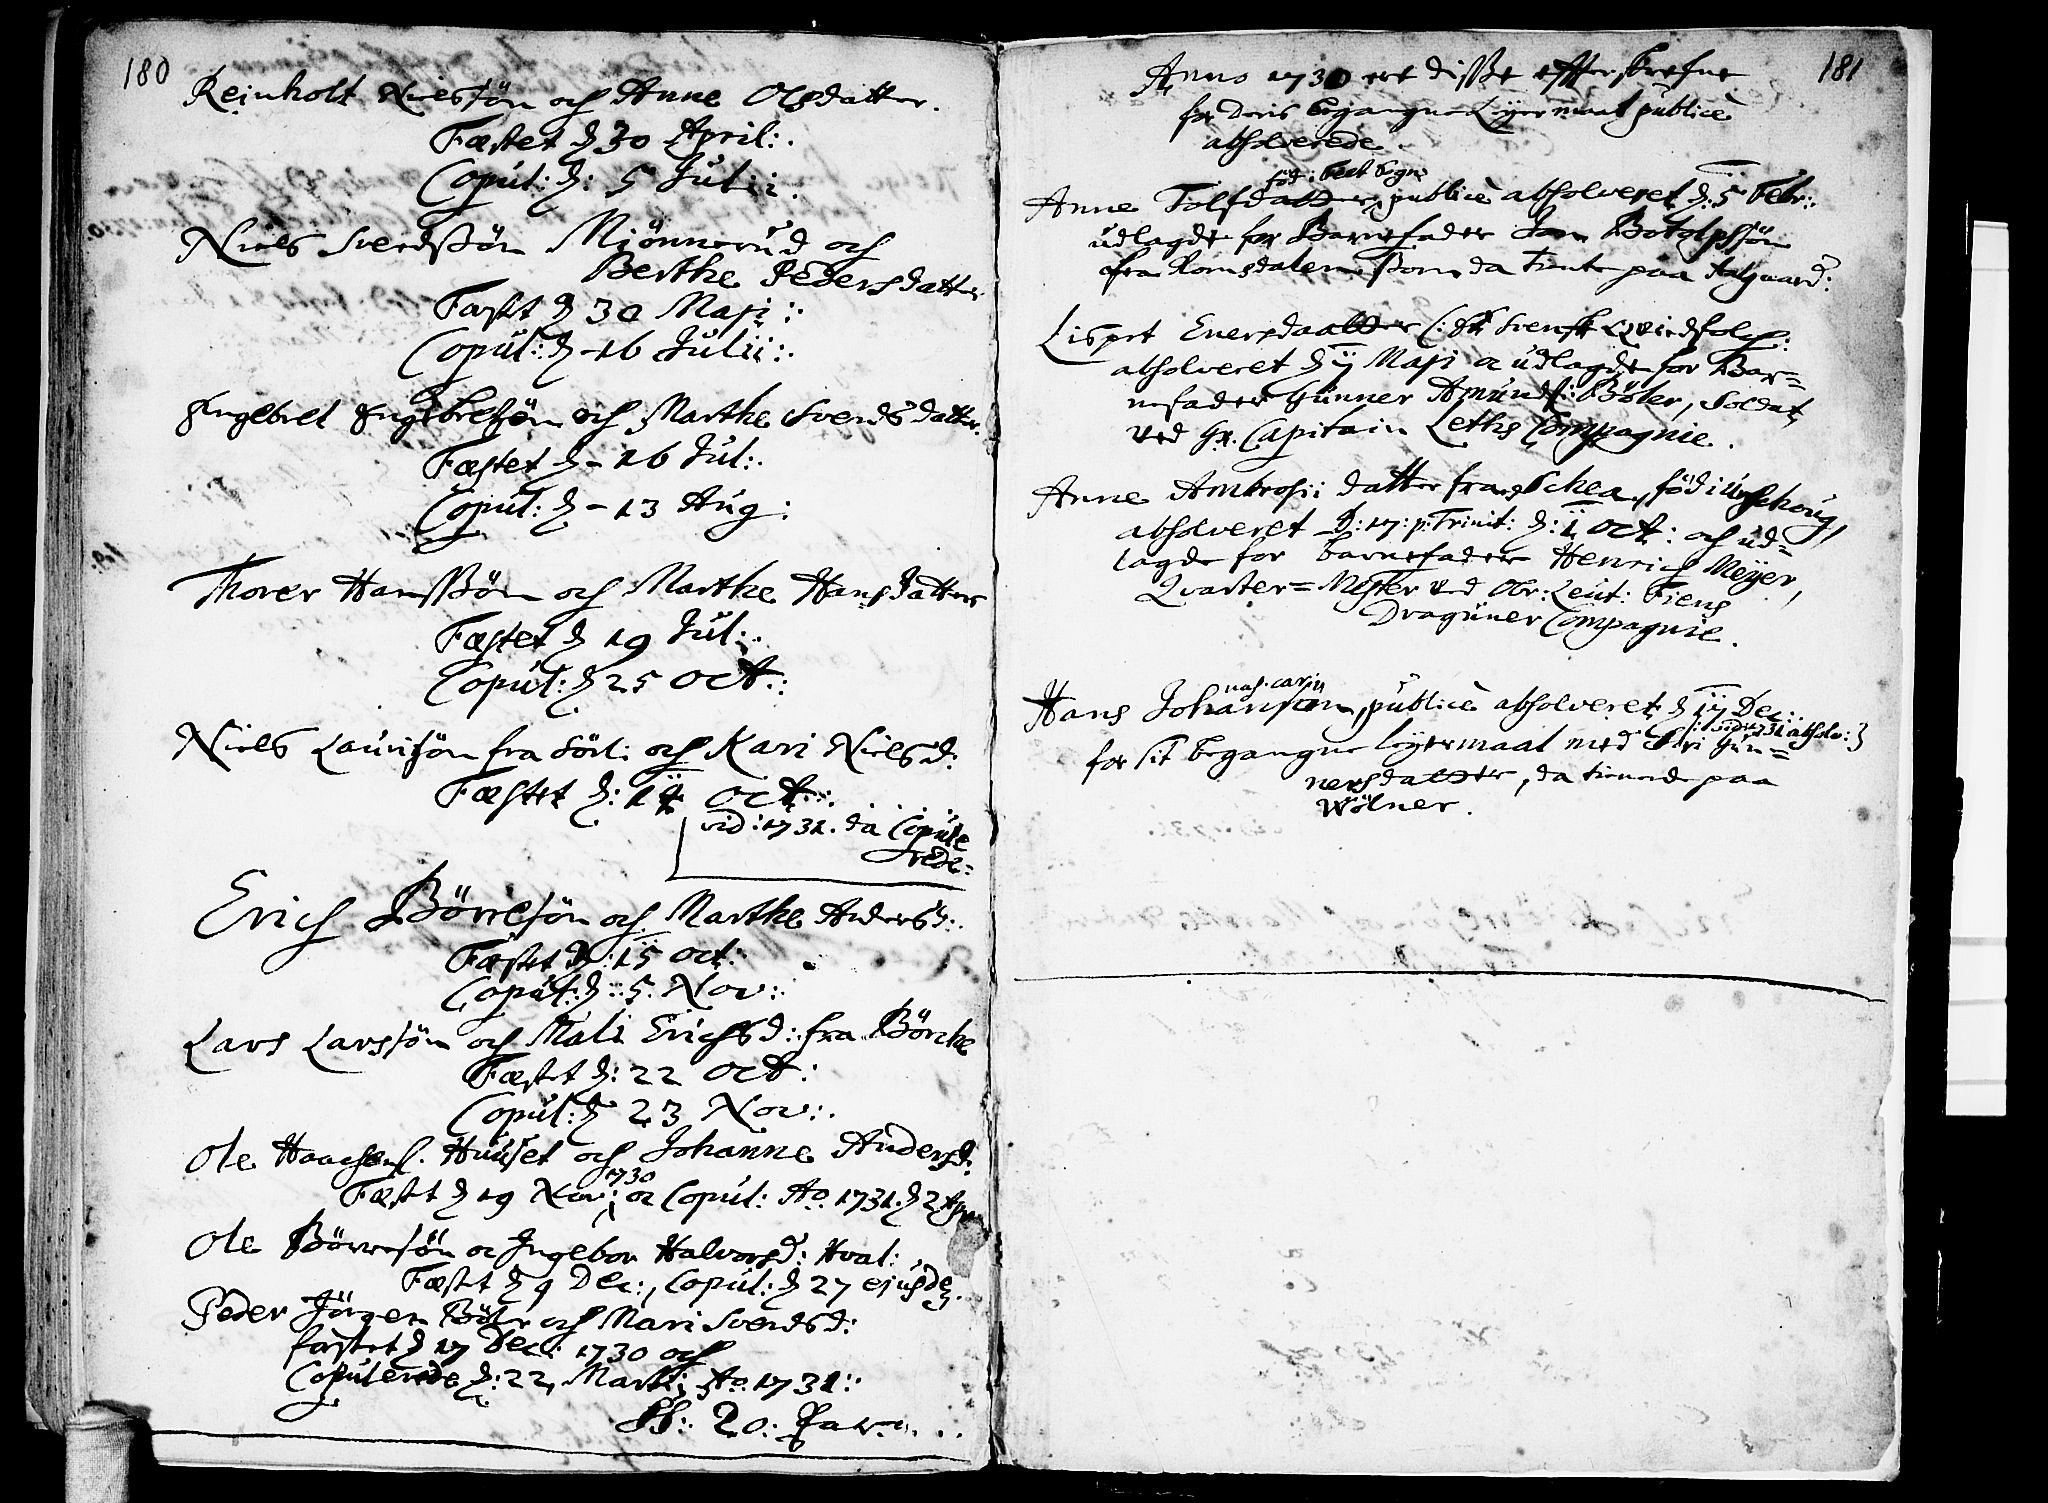 180
Reinholt Nielssön och Anne Olsdatter.
Fæstet d 30 April:.
Copul: d: 5 Julii.
Niels Svendssön Mjönnerud och
Berthe Pedersdatter
Fæstt d 30 Maji:
Copul: d - 16 Julii:.
Engebret Engebretsön och Marthe Svendsdatter.
Fæstet d - 16 Jul:.
Copul: d - 13 Aug:
Thorer Hanssön och Marthe Hansdatter
Fæstet d 19 Jul:.
Copul: d 25 Oct:.
Niels Lauridsön fra Sörl: och Kari Nielsd:
Fæstet d: 14 Oct:.
vid: 1731. da Copule
rede=
Erich Börresön och Marthe Andersd:.
Fæstet d: 15 Oct:
Copul: d: 5. Nov:.
Lars Larssön och Mali Erichsd: fra Börche
Fæstet d: 22 Oct:
Copul: d 23 Nov:.
Ole Haagens. Huuset och Johanne Andersd:
1730
Fæstt d 19 Nov: oc Copul: Ao. 1731. d 2 Apr
Ole Börresön oc Ingebor Halvorsd: Hval:,
Fæstet d 9 Dec:, Copul: d 27 ejusde.
Peder Jörgen Böler och Mari Svendsd:
fæstet d 17 Dec: 1730 och
Copulerede d: 22 Martii Ao. 1731:
20. Par.
181
Anno 1730 ere disse effterskrefne
for deris begangne Leyermaal publice
absolverede.
föd i Sogn
Anne Tolfsdatter, publice absolveret d: 5 Febr:
udlagde for Barnefader Jon Botolfssön
fra Romsdalen, som da tiente paa Aasgaard:
Lispet Enersdaatter (: Svensk qvindfolch:
absolveret d ij Maji oc udlagde for Bar=
nefader Gunner Amunds: Böler, Soldat
ved Hr. Capitain Leths Compagnie.
Anne Ambrosii datter fra Schea, föd i Urschoug,
absolveret D: 17: p: Trinit: d: 1 Oct: och ud=
lagde for barnefader Henrich Meyer,
Qvarter=Mester ved Obr: Leut: Fiens
Draguner Compagnie.
Hans Johansøn, publice absolveret d 17 Dec:.
for sit begangne leyermaal med Siri Gun=
nersdatter, da tienende paa
Wölner.